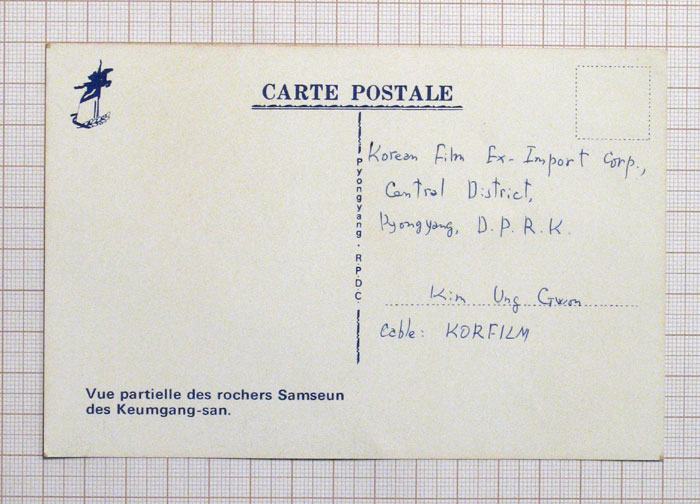 CARTE POSTALE
Pyongyang · R.P.D.C
Korean Film Ex-Import Corp.,
Central District,
Pyongyang, D.P.R.K.
Kim Ung Gwon
Cable: KORFILM
Vue partielle des rochers Samseun
des Keumgang-san.